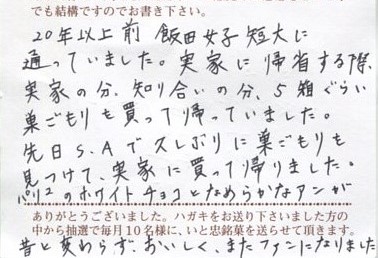 でも結構ですのでお書き下さい。
20年以上前 飯田女子短大に
通っていました。実家に帰省する際、
実家の分、知り合いの分、5箱ぐらい
巣ごもりを買って帰っていました。
先日S.Aで久しぶりに巣ごもりを
見つけて、実家に買って帰りました。
パリパリのホワイトチョコとなめらかなアンが
ありがとうございました。ハガキをお送り下さいました方の
中から抽選で毎月10名様に、いと忠銘菓を送らせて頂きます。
昔と変わらず、おいしく、またファンになりました